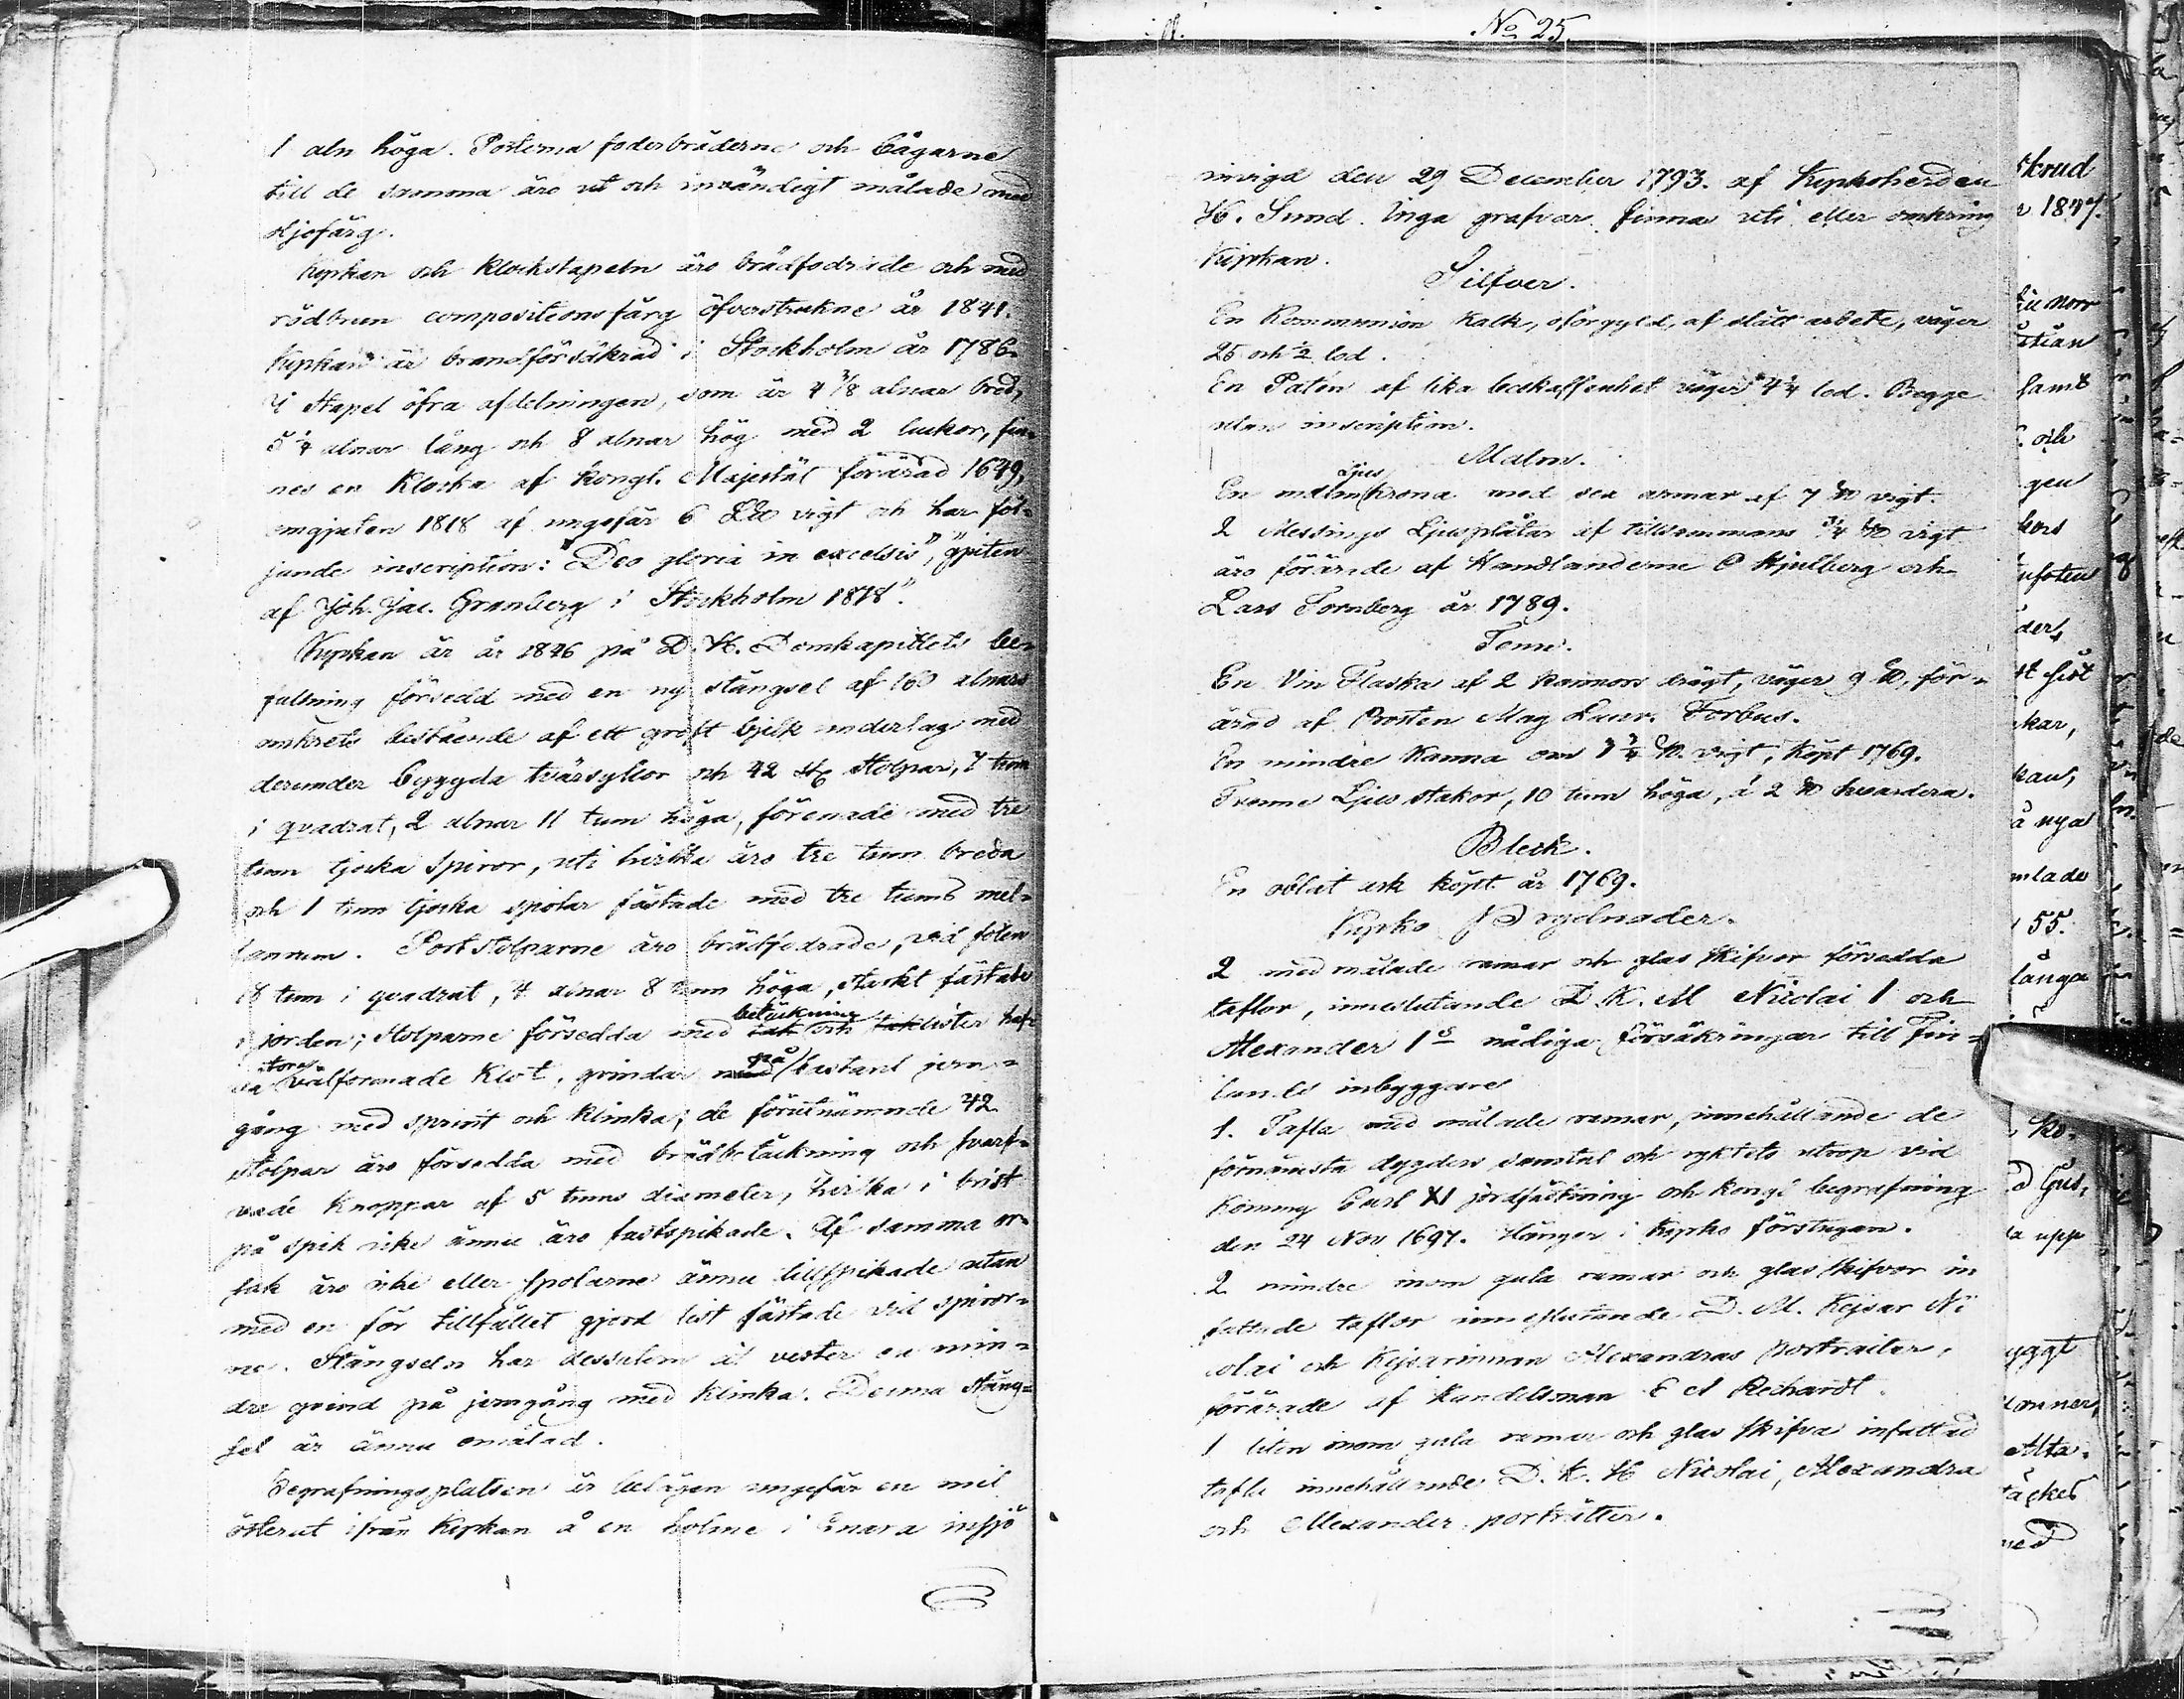 No 25.
1 aln höga. Posterna foderbräderne och bågarne
till de samma äro ut och invändigt målade med
oljefärg.
Kyrkan och Klockstapeln äro brädfodrade och med
rödbrun compositionsfärg öfverstrukne år 1841.
Kyrkan är brandförsäkrad i Stockholm år 1786.
I Stapel öfra afdelningen, som är 4 3/8 alnar bred,
5 1/4 alnar lång och 8 alnar hög med 2 luckor, fin=
nes en Klocka af Kongl. Majestät förärad 1649,
omgjuten 1818 af ungefär 6 LU vigt och har föl=
jande inscription: "Deo gloria in excelsis", "gjuten
af Joh. Jac. Granberg i Stockholm 1818".
Kyrkan är år 1846 på D. H. Domkapitlets be=
fallning försedd med en ny stängsel af 160 alnars
omkrets bestående af ett groft bjelk underlag med
derunder byggda tvärsyllor och 42 st Stolpar, 7 tum
i qvadrat, 2 alnar 11 tum höga, förenade med tre
tum tjocka spiror, uti hvilka äro tre tum breda
och 1 tum tjocka spolar fästade med tre tums mel=
lanrum. Portstolparne äro brädfodrade, vid foten
18 tum i qvadrat, 4 alnar 8 tum höga, starkt fästade
i jorden; Stolparne försedda med betäckning tak och taklister
stora välformade Klot, grindar med på bastant jern=
gång med sprint och klinka; de förutnämnde 42
stolpar äro försedda med brädbetäckning och svarf=
vade Knoppar af 5 tums diameter, hvilka i brist
på spik icke ännu äro fastspikade. Af samma or=
sak äro icke eller spolarne ännu tillspikade utan
med en för tillfället gjord list fästade vid spiror=
ne. Stängseln har dessutom åt vester en min=
dre grind på jerngång med klinka. Denna stäng=
sel är ännu omålad.
Begrafningsplatsen är belägen ungefär en mil
österut ifrån Kyrkan å en holme i Enara insjö
invigd den 29 December 1793. af Kyrkoherden
H. Sund. Inga grafvar finnas uti eller omkring
Kyrkan.
Silfver.
En Kommunion Kalk, oförgyld, af slätt arbete, väger
25 och 1/2 lod.
En Patén af lika beskaffenhet väger 4 1/4 lod. Begge
utan inscription.
Malm.
En malm Ljus krona med sex armar af 7 U vigt.
2 Messings Ljusplåtar af tillsammans 3/4 U vigt
äro förärade af Handlanderne O Kjellberg och
Lars Tornberg år 1789.
Tenn.
En Vin Flaska af 2 Kannors drägt, väger 9 U, för=
ärad af Prosten Mag Laur. Forbus.
En mindre Kanna om 3/4 U. vigt, köpt 1769.
Tvenne Ljusstakar, 10 tum höga, á 2 U hvardera.
Bleck.
En oblat ask köpt år 1769.
Kyrko Prydnader.
2 med målade ramar och glas skifvor försedda
taflor, inneslutande D. K. M Nicolai I och
Alexander 1s nådiga försäkringar till Fin=
lands inbyggare
1. Tafla med målade ramar, innehållande de
förnämsta dygders samtal och ryktets utrop vid
Konung Carl XI jordfästning och Kongl begrafning
den 24 Nov 1697. Hänger i Kyrko förstugan.
2 mindre inom gula ramar och glas skifvor in
fattade taflor inneslutande D. M. Kejsar Ni
colai och Kejsarinnan Alexandras Portraiter,
förärade af Handelsman E A Rechardt.
1 liten inom gula ramar och glas skifva infattad
tafla innehållande D. K. H Nicolai, Alexandra
och Alexander, porträtter.